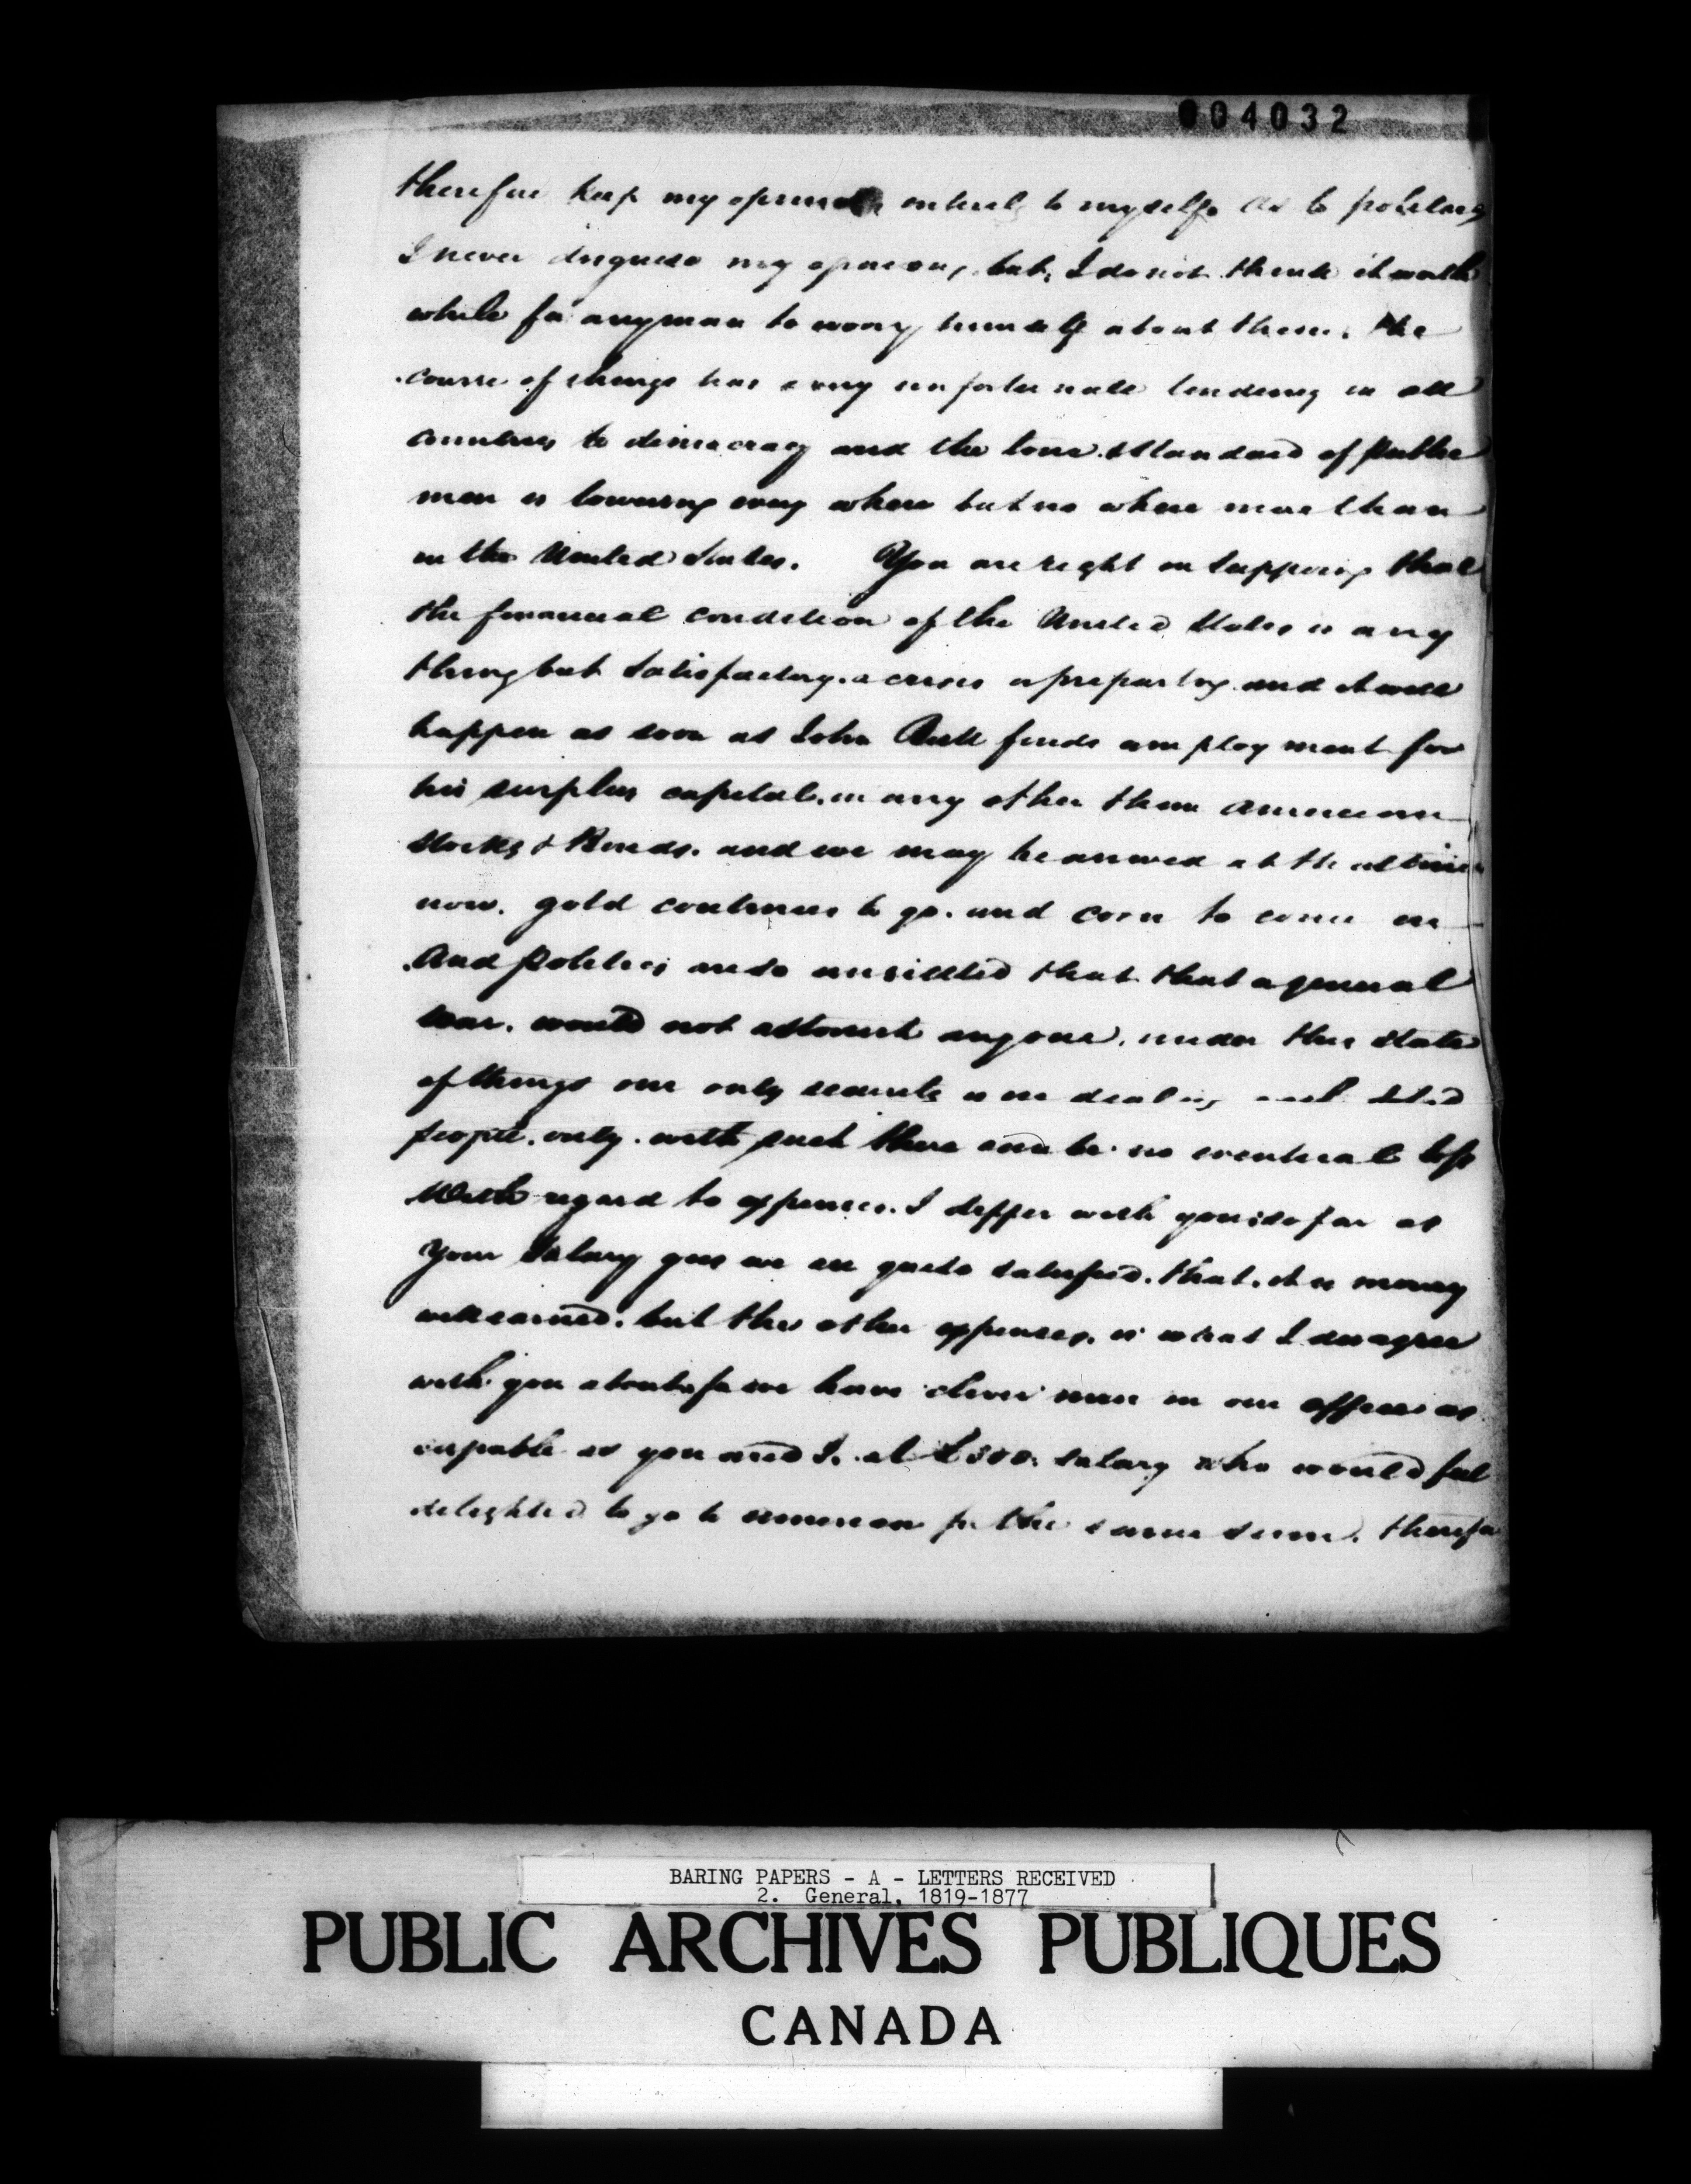 004032
therefore keep my opinions entirely to myself. As to politics
I never disguise my opinion, but, I do not think it worth
while for any man to worry himself about them. The
course of things has a very unfortunate tendency in all
countries to democracy and the tone & standard of public
men is lowering every where but no where more than
in the United States. You are right in supposing that
the financial condition of the United States is any
thing but satisfactory. a crisis is preparing and it will
happen as soon as John Bull finds employment for
his surplus capital, in any other than American
Stocks & Bonds. and we may be at the
now. gold continues to go. and corn to come in
And politics are so unsettled that that a general
war. would not astonish anyone. under this state
of things our only security is in dealing with
people. only. with such there can be no eventual loss
With regard to expenses. I differ with you so far as
your Salary goes we are quite satisfied. that. it is money
well earned. but the other expenses. is what I disagree
with you about, for we have clever men in our office as
capable as you and I. at £300. salary who would feel
delighted to go to America for the same sum. therefore
BARING PAPERS - A - LETTERS RECEIVED
2. General, 1819-1877
PUBLIC ARCHIVES PUBLIQUES
CANADA